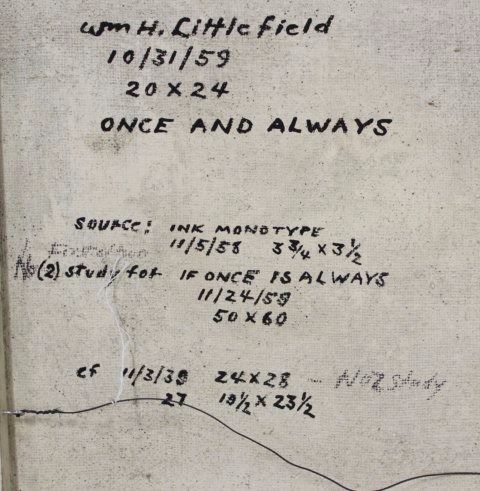 Wm H. Littlefield
10/31/59
20 X 24
ONCE AND ALWAYS
SOURCE: INK MONOTYPE
11/5/58 3 3/4 X 3 1/2
No (2) study for IF ONCE IS ALWAYS
11/24/59
50 X 60
cf 11/3/39 24X28 — No 2 Study
27 19 1/2 X 23 1/2